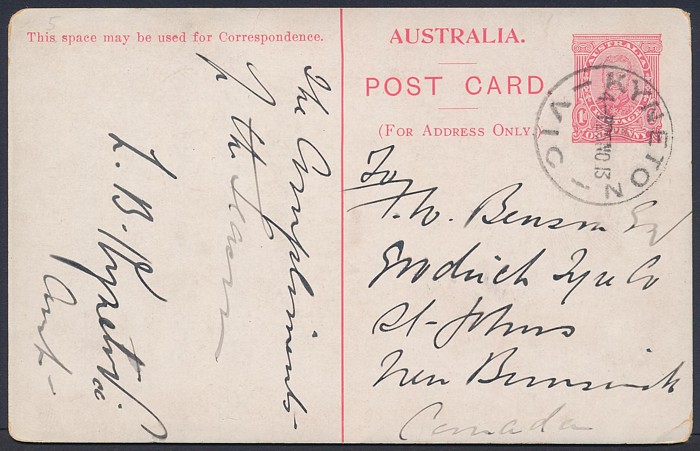 This space may be used for Correspondence.
The Compliments
of the Season
Kyneton
Aust-
AUSTRALIA.
POST CARD.
(FOR ADDRESS ONLY.)
AUSTRALIA
ONE PENNY
KYNETON
NO 13
VIC
To
W. Benson Esq
Goodrich Tyre Co
St-Johns
New Brunswick
Canada